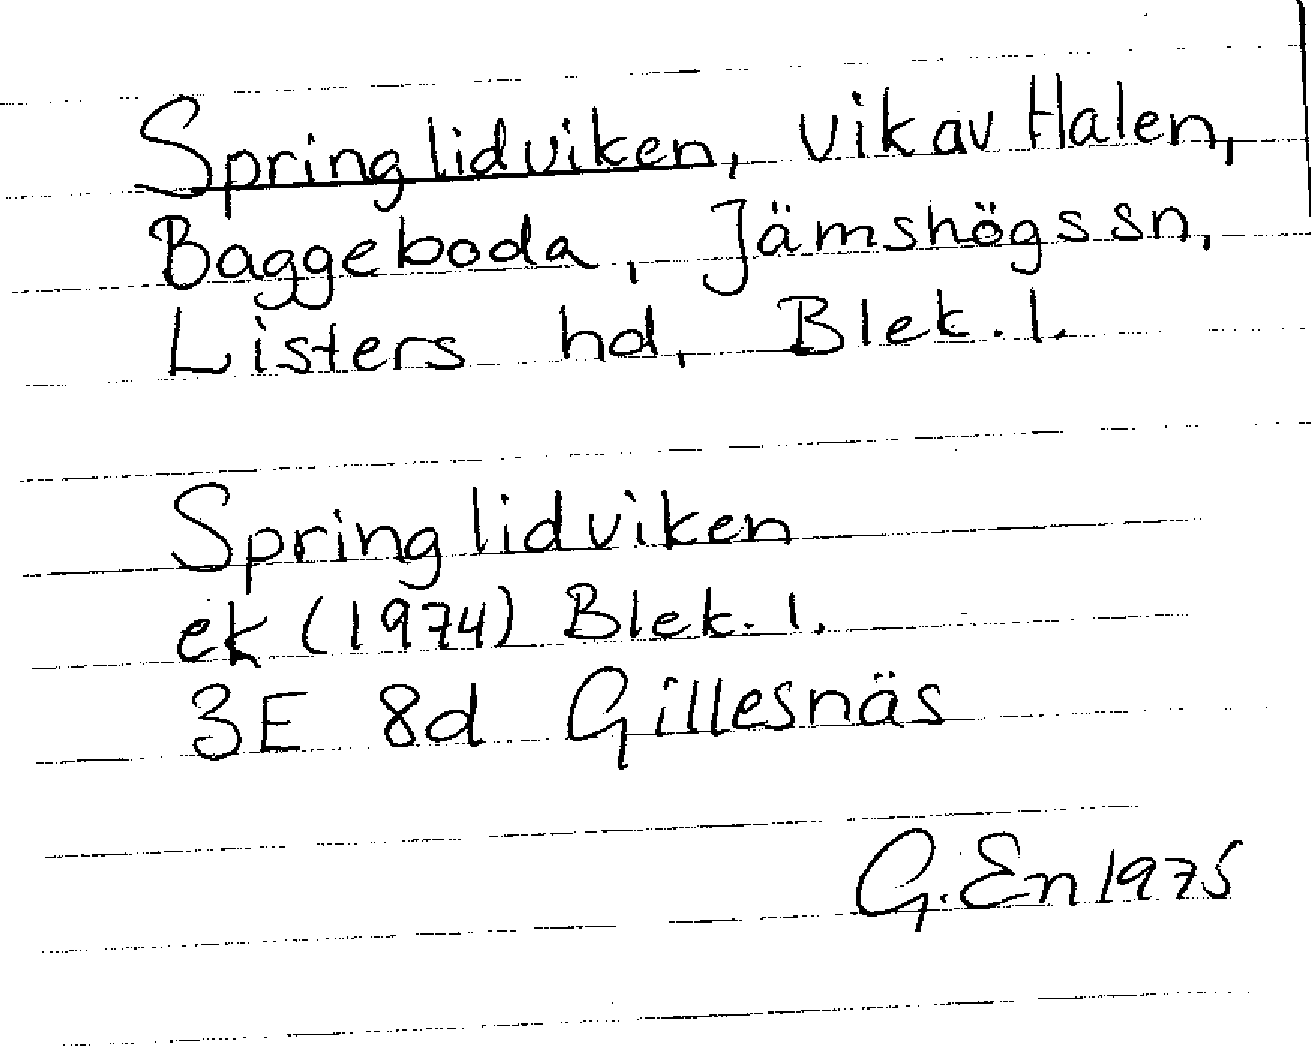 Springlidviken, vik av Halen,
Baggeboda, Jämshögs sn,
Listers hd, Blek. l.
Springlidviken
ek (1974) Blek. l.
3E 8d Gillesnäs
G. En 1975